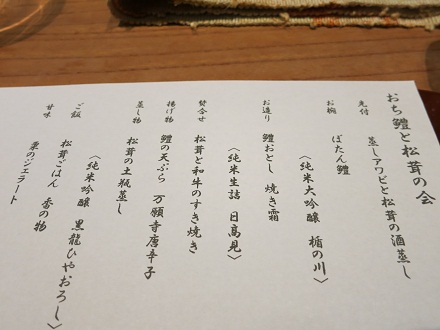 おち鱧と松茸の会
先付
蒸しアワビと松茸の酒蒸し
お椀
ぼたん鱧
〈純米大吟醸 楯の川〉
お造り
鱧おとし 焼き霜
〈純米生詰 日高見〉
焚合せ
松茸と和牛のすき焼き
揚げ物
鱧の天ぷら 万願寺唐辛子
蒸し物
松茸の土瓶蒸し
〈純米吟醸 黒龍ひやおろし〉
ご飯
松茸ごはん 香の物
甘味
栗のジェラート